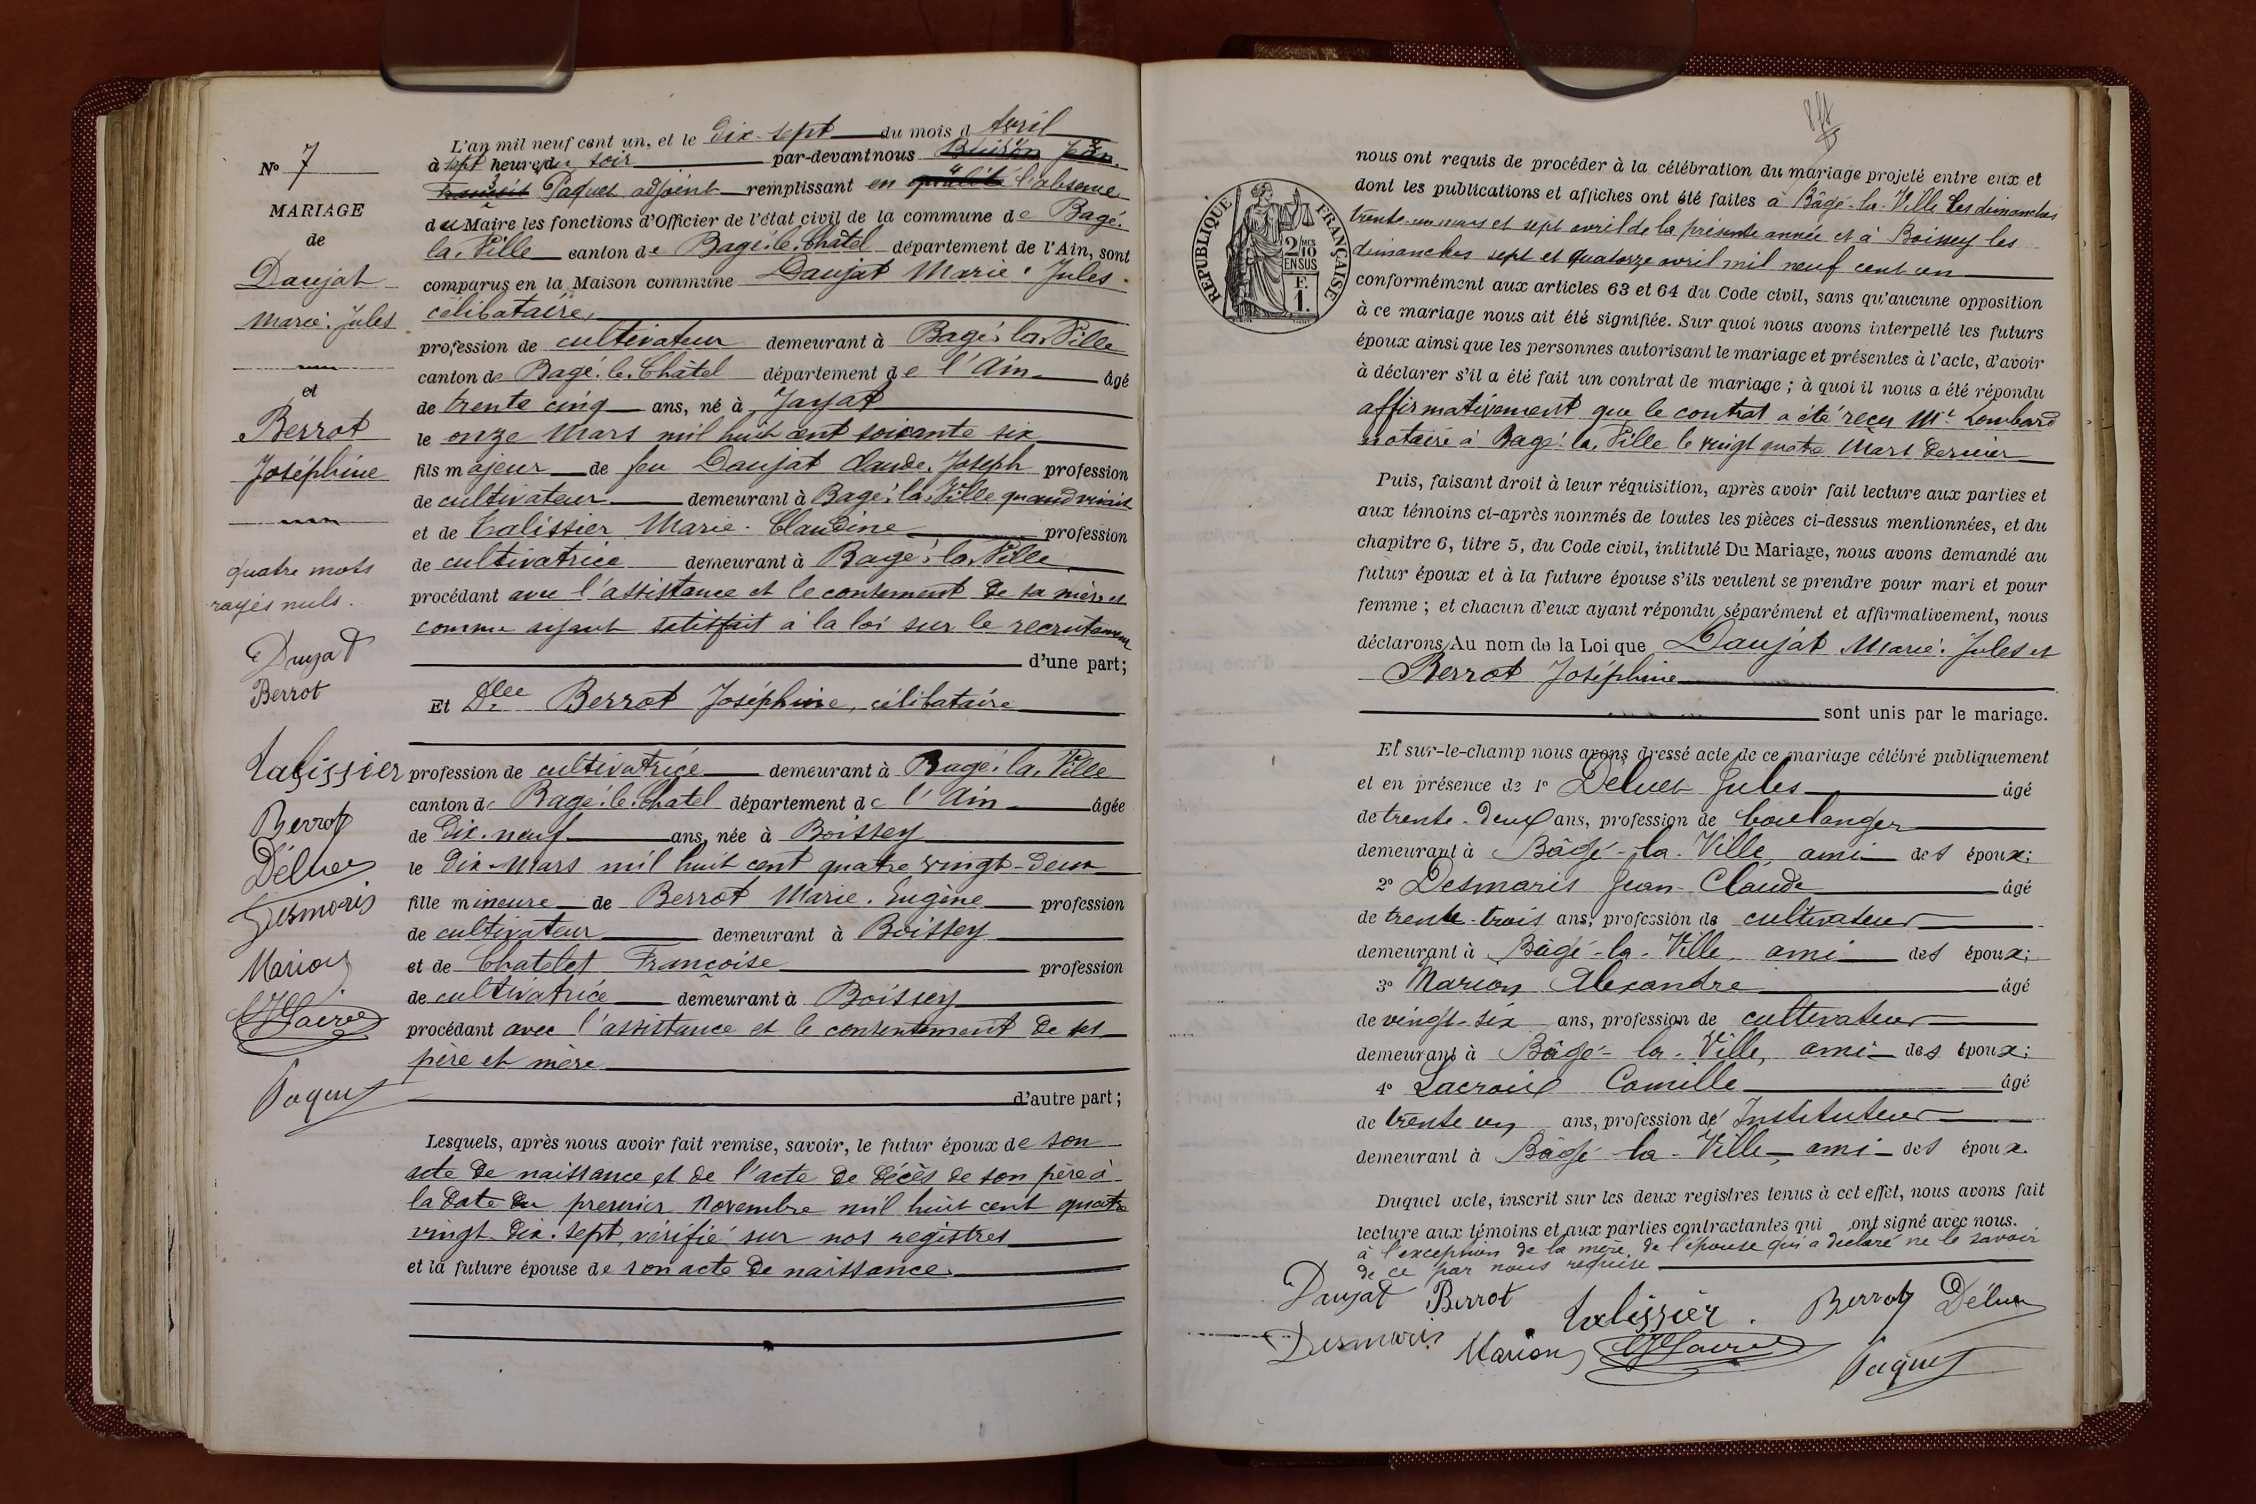 N° 7
MARIAGE
de
Daujat
Marie-Jules
et
Berrot
Joséphine
quatre mots
rayés nuls.
Daujat
Berrot
Talissier
Berrot
Déluer
Desmaris
Marion
Paquet
L'an mil neuf cent un, et le dix-sept du mois d'Avril
à sept heures du soir par-devant nous Buiron Jean
François Paquet adjoint remplissant en qualité l'absence
du Maire les fonctions d'Officier de l'état civil de la commune de Bagé-
la-Ville canton de Bagé-le-Châtel département de l'Ain, sont
comparus en la Maison commune Daujat Marie-Jules
célibataire,
profession de cultivateur demeurant à Bagé-la-Ville
canton de Bagé-le-Châtel département de l'Ain âgé
de trente cinq ans, né à Jayat
le onze Mars mil huit cent soixante six
fils majeur de feu Daujat Claude-Joseph profession
de cultivateur demeurant à Bagé-la-Ville quand vivait
et de Talissier Marie-Claudine profession
de cultivatrice demeurant à Bagé-la-Ville
procédant avec l'assistance et le consement de sa mère et
comme ayant satisfait à la loi sur le recrutement
d'une part;
Et Dlle Berrot Joséphine, célibataire
profession de cultivatrice demeurant à Bagé-la-Ville
canton de Bagé-le-Chatel département de l'Ain âgée
de dix-neuf ans, née à Boissey
le dix Mars mil huit cent quatre vingt-deux
fille mineure de Berrot Marie-Eugène profession
de cultivateur demeurant à Boissey
et de Chatelet Françoise profession
de cultivatrice demeurant à Boissey
procédant avec l'assistance et le consentement de ses
père et mère
d'autre part;
Lesquels, après nous avoir fait remise, savoir, le futur époux de son
acte de naissance et de l'acte de décès de son père à
la date du premier Novembre mil huit cent quatre
vingt-dix-sept, vérifié sur nos registres
et la future épouse de son acte de naissance
RÉPUBLIQUE FRANÇAISE
2/10
EN SUS
F.
1.
nous ont requis de procéder à la célébration du mariage projeté entre eux et
dont les publications et affiches ont été faites à Bâgé-la-Ville les dimanches
trente-un mars et sept avril de la présente année et à Boissey les
dimanches sept et quatorze avril mil neuf cent un
conformément aux articles 63 et 64 du Code civil, sans qu'aucune opposition
à ce mariage nous ait été signifiée. Sur quoi nous avons interpellé les futurs
époux ainsi que les personnes autorisant le mariage et présentes à l'acte, d'avoir
à déclarer s'il a été fait un contrat de mariage; à quoi il nous a été répondu
affirmativement que le contrat a été reçu Mt Lombard
notaire à Bagé-la-Ville le vingt quatre Mars dernier
Puis, faisant droit à leur réquisition, après avoir fait lecture aux parties et
aux témoins ci-après nommés de toutes les pièces ci-dessus mentionnées, et du
chapitre 6, titre 5, du Code civil, intitulé Du Mariage, nous avons demandé au
futur époux et à la future épouse s'ils veulent se prendre pour mari et pour
femme; et chacun d'eux ayant répondu séparément et affirmativement, nous
déclarons Au nom de la Loi que Daujat Marie-Jules et
Berrot Joséphine
sont unis par le mariage.
Et sur-le-champ nous avons dressé acte de ce mariage célébré publiquement
et en présence de 1° Deluer Jules âgé
de trente-deux ans, profession de boulanger
demeurant à Bâgé-la-Ville, ami des époux;
2° Desmaris Jean-Claude âgé
de trente-trois ans, profession de cultivateur
demeurant à Bâgé-la-Ville ami des époux;
3° Marion Alexandre âgé
de vingt-six ans, profession de cultivateur
demeurant à Bâgé-la-Ville, ami des époux;
4° Lacroix Camille âgé
de trente un ans, profession de Instituteur
demeurant à Bâgé-la-Ville, ami des époux.
Duquel acte, inscrit sur les deux registres tenus à cet effet, nous avons fait
lecture aux témoins et aux parties contractantes qui ont signé avec nous.
à l'exception de la mère de l'épouse qui a déclaré ne le savoir
de ce par nous requise
Daujat Berrot Talissier. Berrot Déluer
Desmaris Marion Paquet